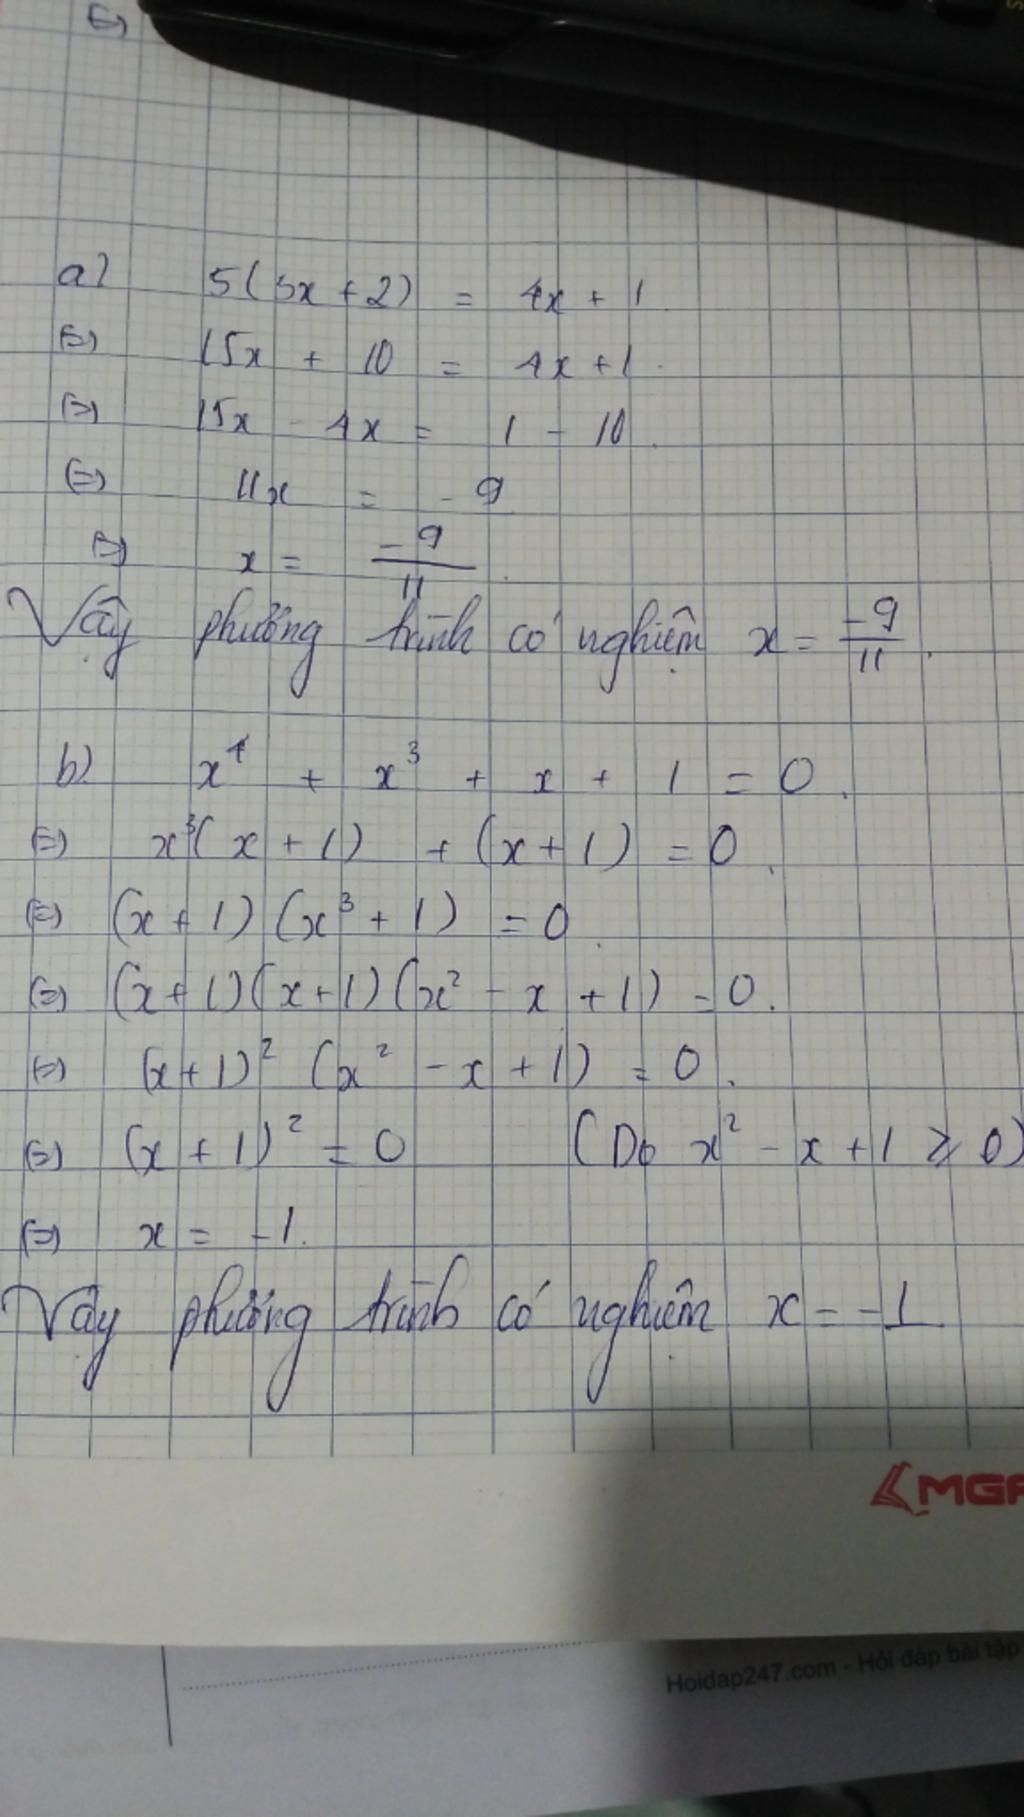 a) 5(3x + 2) = 4x + 1
(=) 15x + 10 = 4x + 1.
(=) 15x - 4x = 1 - 10.
(=) 11x = - 9
(=) x = -9/11.
Vậy phương trình có nghiệm x = -9/11.
b) x⁴ + x³ + x + 1 = 0.
(=) x³(x + 1) + (x + 1) = 0.
(=) (x + 1)(x³ + 1) = 0.
(=) (x + 1)(x + 1)(x² - x + 1) = 0.
(=) (x + 1)² (x² - x + 1) = 0.
(=) (x + 1)² = 0 (Do x² - x + 1 ≥ 0)
(=) x = -1.
Vậy phương trình có nghiệm x = -1
Hoidap247.com - Hỏi đáp bài tập